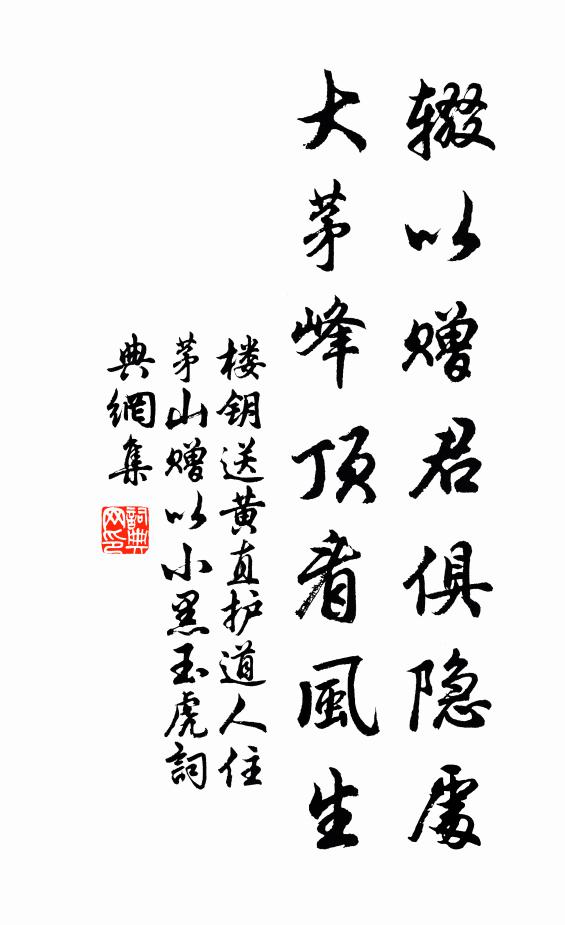 辍以赠君俱隐處
大茅峰顶看風生
楼钥送黄直护道人住
茅山赠以小黑玉虎詞
典網集
詞典网印